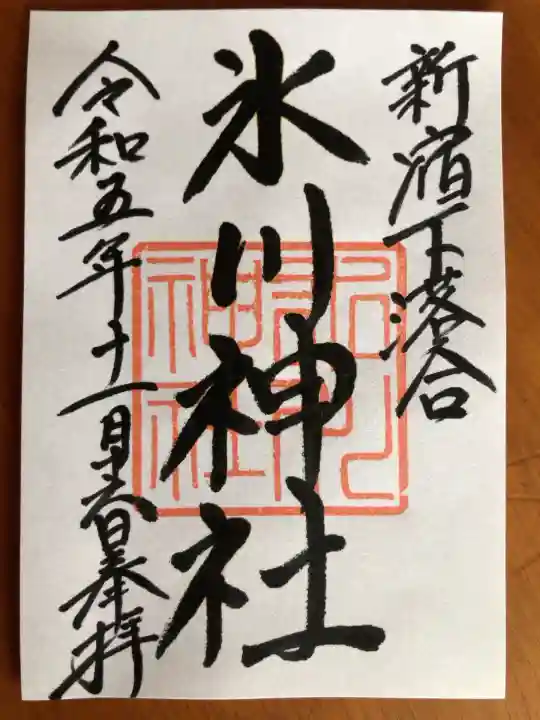 新宿下落合
氷川神社
令和五年十一月六日奉拝